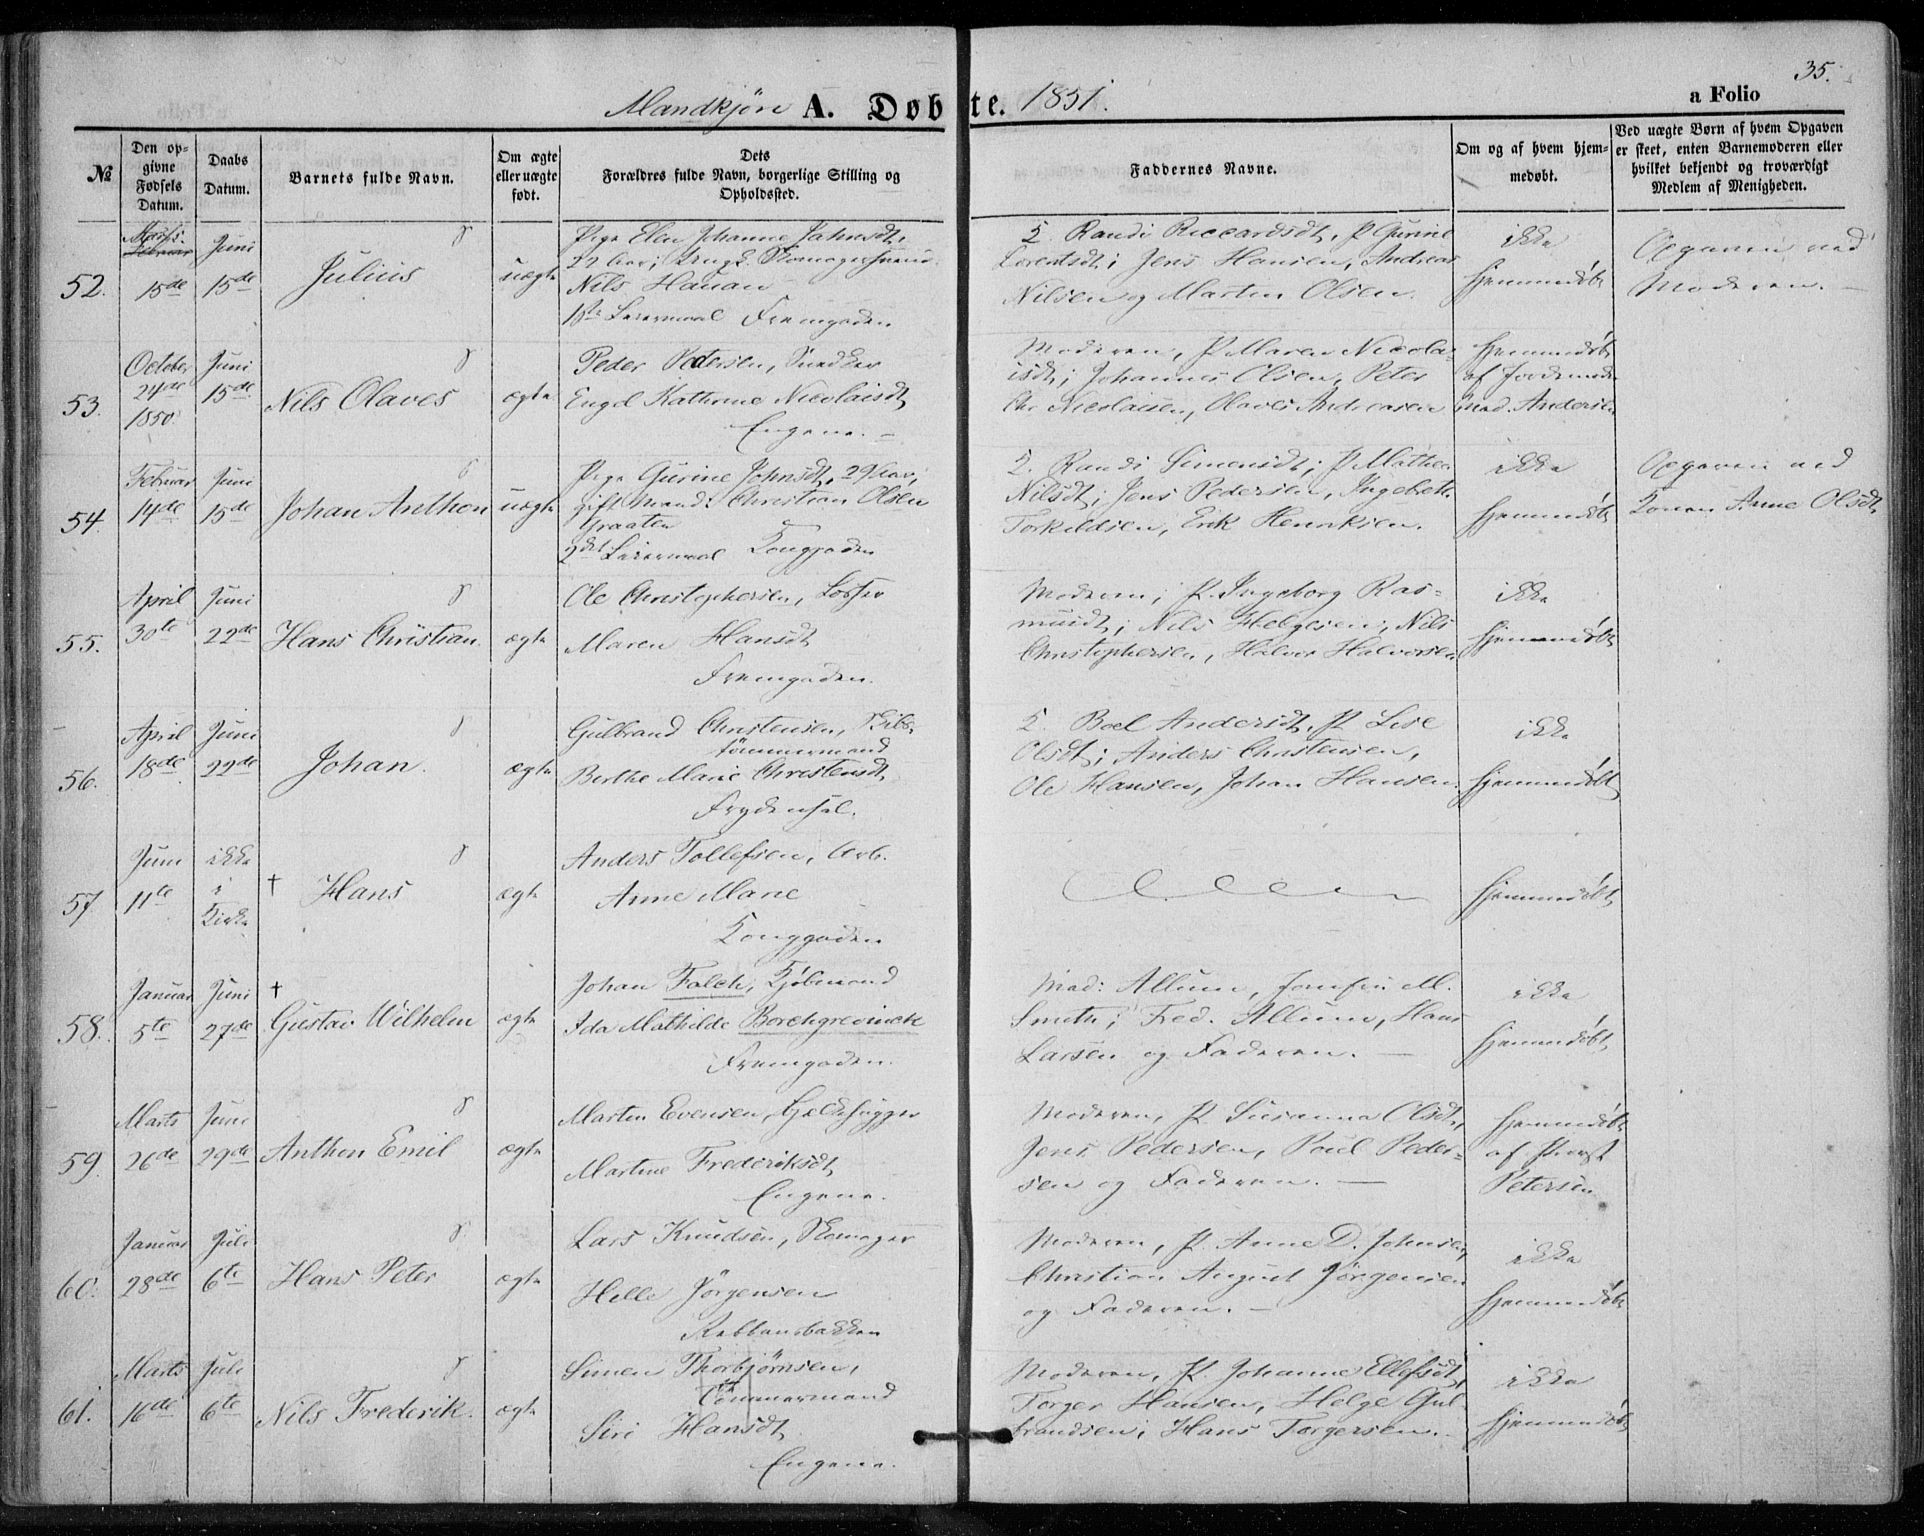 35.
Mandkjøn A. Døbte. 1851. a Folio
№
Den opgivne Fødsels Datum.
Daabs Datum.
Barnets fulde Navn.
Om ægte eller uægte født.
Dets Forældres fulde Navn, borgerlige Stilling og Opholdssted.
Faddernes Navne.
Om og af hvem hjemmedøbt.
Ved uægte Børn af hvem Opgaven er skeet, enten Barnemoderen eller hvilket bekjendt og troværdigt Medlem af Menigheden.
52.
Marts
15de
Juni
15de
Julius
uægte
Pige Elen Johanne Jahnsdt,
27 Aar; Ungk. Skomagersvend
Nils Hanan
1ste Leiermaal Fremgaden
K. Randi Riccardsdt, P. Gurine
Lorentsdt; Jens Hansen, Andreas
Nilsen og Marten Olsen.
ikke
hjemmedøbt
Opgaven ved
Moderen.
53.
October
24de
1850.
Juni
15de
Nils Olaves
ægte
Peder Pedersen, Snedker
Engel Kathrine Nicolaisdt
Engene.
Moderen, P. Maren Nicola-
isdt; Johannes Olsen, Peter
Chr. Nicolaisen, Olaves Andreasen
hjemmedøbt
af Jordemoder
Mad. Andersen
54.
Februar
14de
Juni
15de
Johan Anthon
uægte
Pige Gurine Johnsdt, 29 Aar;
gift Mand Christian Olsen
Graaten
2det Leiermaal Konggaden
K. Randi Simensdt; P. Mathea
Nilsdt; Jens Pedersen, Ingebret
Torkildsen, Erik Henriksen.
ikke
hjemmedøbt
Opgaven ved
Konen Anne Olsdt.
55.
April
30te
Juni
22de
Hans Christian.
ægte
Ole Christophersen, Losser
Maren Hansdt
Fremgaden.
Moderen; P. Ingeborg Ras-
musdt; Nils Helgesen, Nils
Christophersen, Halvor Halvorsen
ikke
hjemmedøbt
56.
April
18de
Juni
22de
Johan.
ægte
Gulbrand Christensen, Skibs-
tømmermand
Berthe Marie Christensdt,
Frydensal.
K. Boel Andersdt, P. Lise
Olsdt; Anders Christensen,
Ole Hansen, Johan Hansen.
ikke
hjemmedøbt
57
Juni
11te
ikke
i
Kirke
† Hans
ægte
Anders Tollefsen, Arb.
Anne Marie
Konggaden
hjemmedøbt
58.
Januar
5te
Juni
27de
†
Gustav Wilhelm
ægte
Johan Falch, Kjøbmand
Ida Mathilde Borchgrevinck
Fremgaden.
Mad: Allum, Jomfru M.
Smith; Fred. Allum, Hans
Larsen og Faderen.
ikke
hjemmedøbt
59.
Marts
26de
Juni
29de
Anthon Emil
ægte
Marten Evensen, Hjeldehugger
Martine Frederiksdt,
Engene.
Moderen, P. Susanna Olsdt,
Jens Pedersen, Poul Peder-
sen og Faderen.
hjemmedøbt
af Provst
Petersen
60.
Januar
28de
Juli
6te
Hans Peter
ægte
Lars Knudsen, Skomager
Helle Jörgensen
Rebbansbakken
Moderen, P. Anne D. Johnsen,
Christian August Jörgensen
og Faderen.
ikke
hjemmedøbt
61.
Marts
16de
Juli
6te
Nils Frederik.
ægte
Simen Thorbjørnsen,
Tömmermand
Siri Hansdt
Engene.
Moderen, P. Johanne Ellefsdt,
Torger Hansen, Helge Gul-
brandsen, Hans Torgersen.
ikke
hjemmedøbt